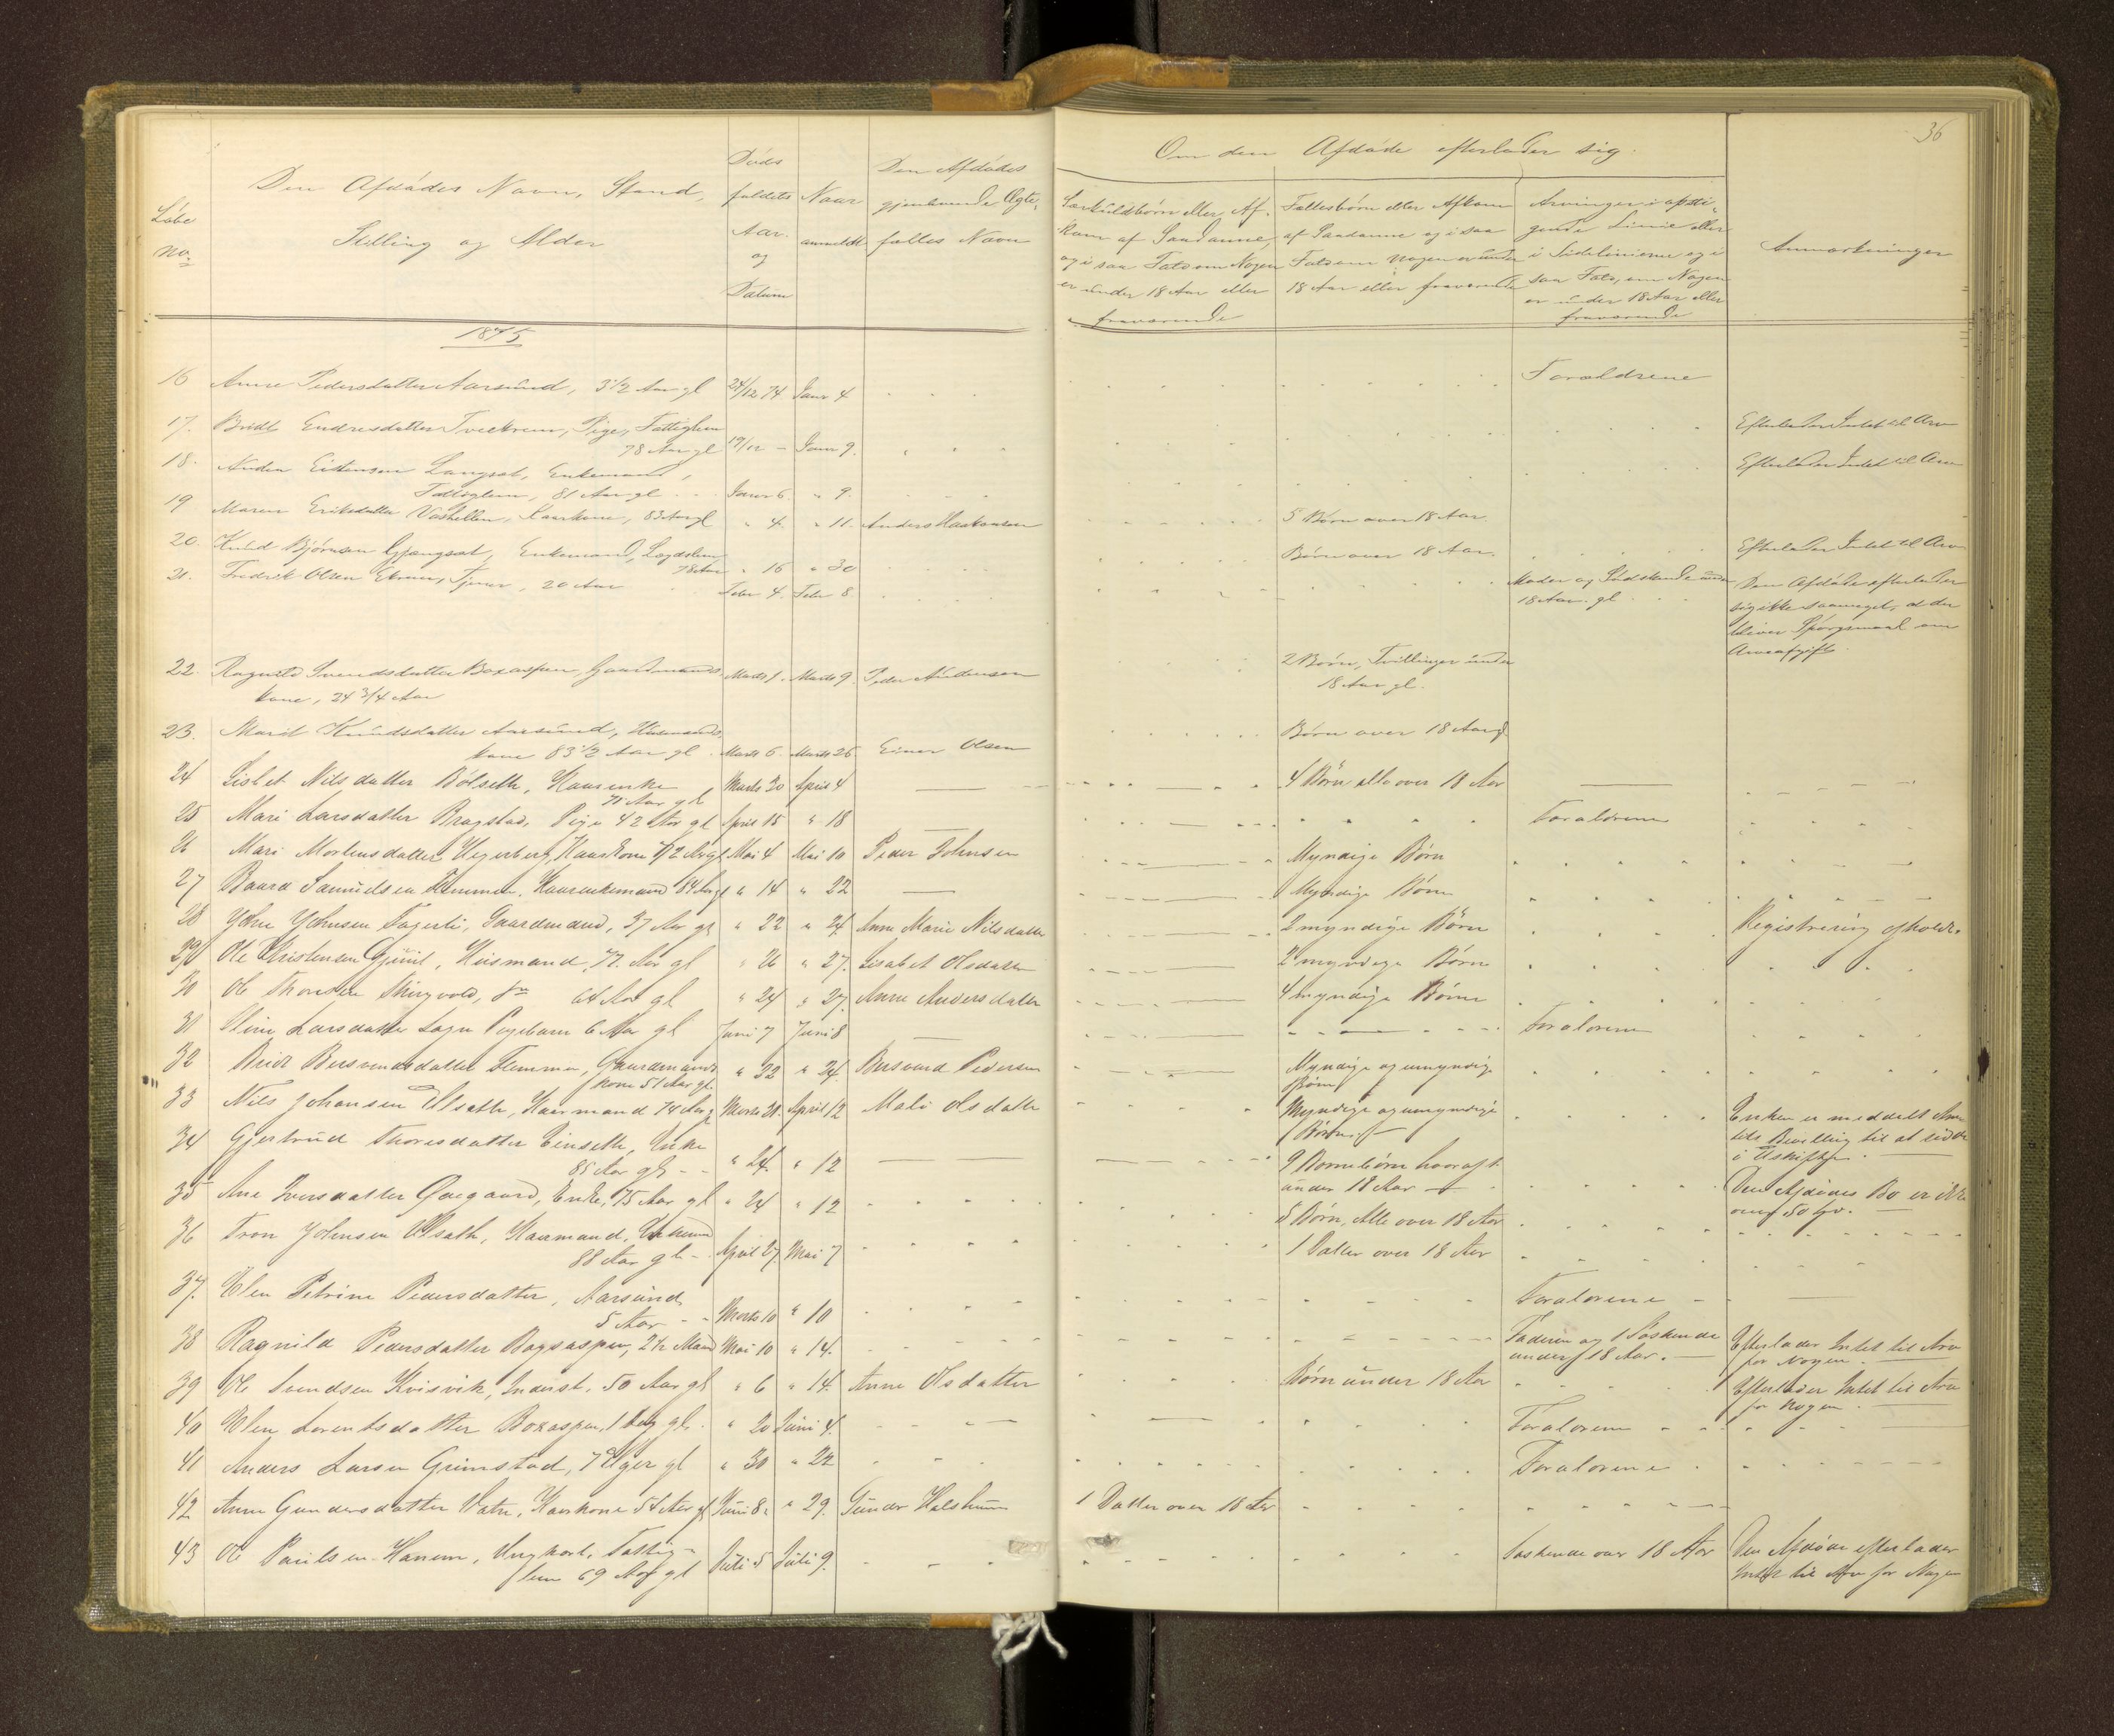 36
Løbe No.
Den Afdødes Navn, Stand, Stilling og Alder
Dødsfaldets Aar og Datum
Naar anmeldt
Den Afdødes gjenlevende Ægtefælles Navn
Om den Afdøde efterlader sig
Særkuldbørn eller Afkom af Saadanne, og i saa Fald om Nogen er under 18 Aar eller fraværende
Fællesbørn eller Afkom af Saadanne og i saa Fald om nogen er under 18 Aar eller fraværende
Arvinger i opstigende Linie eller i Sidelinierne og i saa Fald, om Nogen er under 18 Aar eller fraværende
Anmærkninger
1875
16 Anne Pedersdatter Aarsund, 3 1/2 Aar gl 24/12 74 Janr 4 Forældrene
17. Endresdatter Pige, Fattiglem 78 Aar gl 19/12 - Janr 9. Efterlader Intet til Arv
18. Enkemand, Fattiglem, 81 Aar gl Janr 6. " 9. Efterlader Intet til Arv
19 Maren Eriksdatter Kaarkone, 83 Aar gl " 4. " 11. Anders Haakonsen 5 Børn over 18 Aar.
20. Knud Bjørnsen Gjengset, Enkemand, Lægdslem 78 Aar " 16 " 30 Børn over 18 Aar. Efterlader Intet til Arv
21. Fredrik Olsen Tjener, 20 Aar Febr 4. Febr 8 Moder og Sødskende under 18 Aar gl Den Afdøde efterlader sig ikke saameget, at der bliver Spørgsmaal om Arveafgift.
22. Svendsdatter Boxaspen, Gaardmandskone, 24 3/4 Aar Marts 1. Marts 9. Peder Andersen 2 Børn, Tvillinger under 18 Aar gl.
23. Marit Knudsdatter Aarsund, Huusmandskone 83 1/2 Aar gl. Marts 6. Marts 26. Einer Olsen Børn over 18 Aar gl
24 Lisbet Nilsdatter Bølseth, Kaarenke 71 Aar gl Marts 20 April 4 4 Børn alle over 18 Aar
25 Mari Larsdatter Bragstad, Pige 42 Aar gl April 15 " 18 Forældrene
26 Mari Mortensdatter Hegerberg, Kaarkone 72 Aar gl Mai 4 Mai 10 Peder Johnsen Myndige Børn
27 Baard Samuelsen Flemmen, Kaarenkemand 84 Aar gl " 14 " 22 Myndige Børn
28 John Johnsen Fagerli, Gaardmand, 37 Aar gl " 22 " 24. Anne Marie Nilsdatter 2 myndige Børn Registrering afholdt.
29 Ole Christensen Husmand, 77. Aar gl " 26 " 27. Lisabet Olsdatter 2 myndige Børn
30 Ole Thoresen Stingvold, do 64 Aar gl " 24 " 27. Anne Andersdatter 4 myndige Børn
31 Stine Larsdatter Pigebarn 6 Aar gl Juni 7 Juni 8 Forældrene
32 Flemmen, Gaardmandskone 51 Aar gl. " 22 " 24. Pedersen Myndige og umyndige Børn
33 Nils Johansen Ulsæth, Kaarmand 74 Aar gl Marts 21. April 12 Mali Olsdatter Myndige og umyndige Børn Enken er meddelt Amtets Bevilling til at sidde i Uskiftet.
34 Gjertrud Thoresdatter Einseth, Enke 85 Aar gl - - " 24. " 12 9 Børnebørn hvoraf 1 under 18 Aar
35 Ane Iversdatter Enke, 75 Aar gl " 24 " 12 5 Børn, Alle over 18 Aar Den Afdødes Bo er ikke over 50
36 Tron Johnsen Ulsæth, Kaarmand, Enkemand 88 Aar gl - April 27. Mai 7 1 Datter over 18 Aar
37. Elen Petrine Pedersdatter, Aarsund, 5 Aar - - Marts 10 " 10 Forældrene
38 Ragnild Pedersdatter 2 1/2 Maaned Mai 10 " 14. Faderen og 1 Søskende under 18 Aar. Efterlader Intet til Arv for Nogen.
39 Ole Svendsen Kvisvik, Inderst, 50 Aar gl " 6 " 14. Anne Olsdatter Børn under 18 Aar Efterlader Intet til Arv for Nogen.
40 Elen Lorentsdatter Boxaspen, 1 Dag gl. " 20 Juni 4. Forældrene
41 Anders Larsen Grimstad, 7 Uger gl " 30 " 22 Forældrene
42 Anne Gundersdatter Vatn, Kaarkone 54 Aar gl Juni 8. " 29. 1 Datter over 18 Aar
43 Ole Paulsen Hanem, Ungkarl, Fattiglem 69 Aar gl Juli 5 Juli 9. Søskende over 18 Aar Den Afdøde efterlader Intet til Arv for Nogen